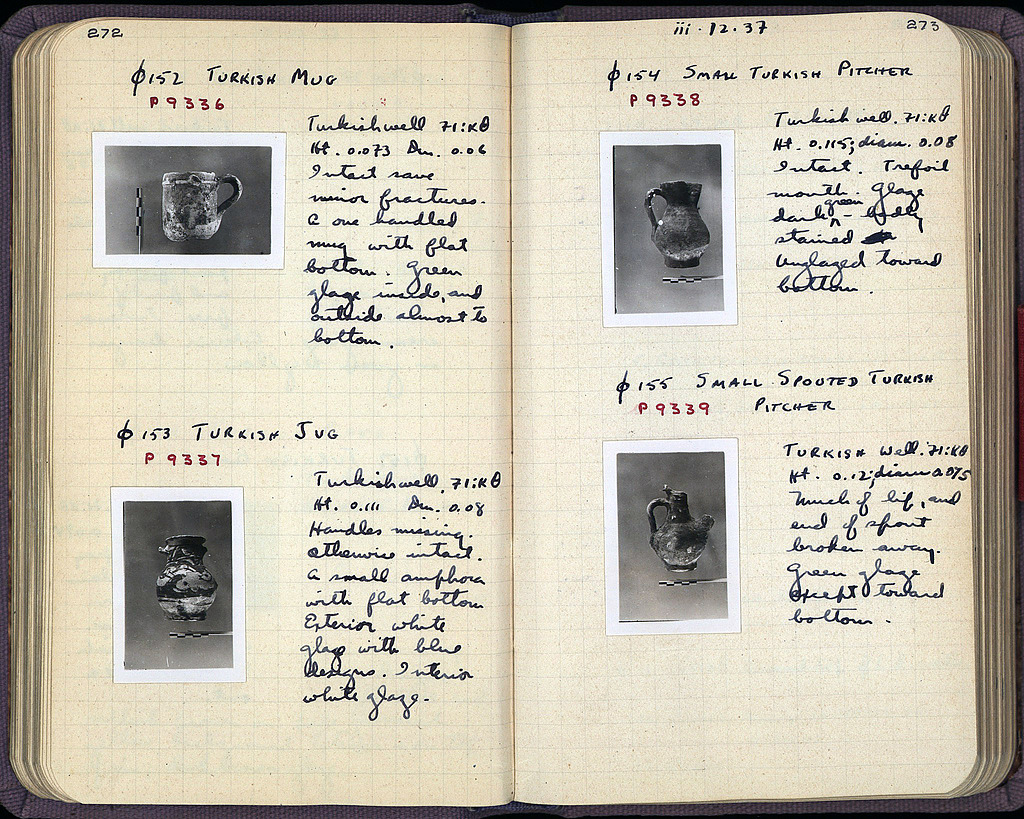 272
φ152 TURKISH MUG
P 9336
Turkish well 71:ΚΘ
Ht. 0.073 Dm. 0.06
Intact save
minor fractures.
A one handled
mug with flat
bottom. Green
glaze inside, and
outside almost to
bottom.
φ153 TURKISH JUG
P 9337
Turkish well, 71:ΚΘ
Ht. 0.111 Dm. 0.08
Handles missing.
Otherwise intact.
A small amphora
with flat bottom
Exterior white
glaze with blue
designs. Interior
white glaze.
iii·12·37
273
φ154 SMALL TURKISH PITCHER
P 9338
Turkish well. 71:ΚΘ
Ht. 0.115; diam. 0.08
Intact. Trefoil
mouth. Glaze
dark green – badly
stained
Unglazed toward
bottom.
φ155 SMALL SPOUTED TURKISH
P 9339 PITCHER
TURKISH Well. 71:ΚΘ
Ht. 0.12; diam 0.075
Much of lip, and
end of spout
broken away.
Green glaze
except toward
bottom.